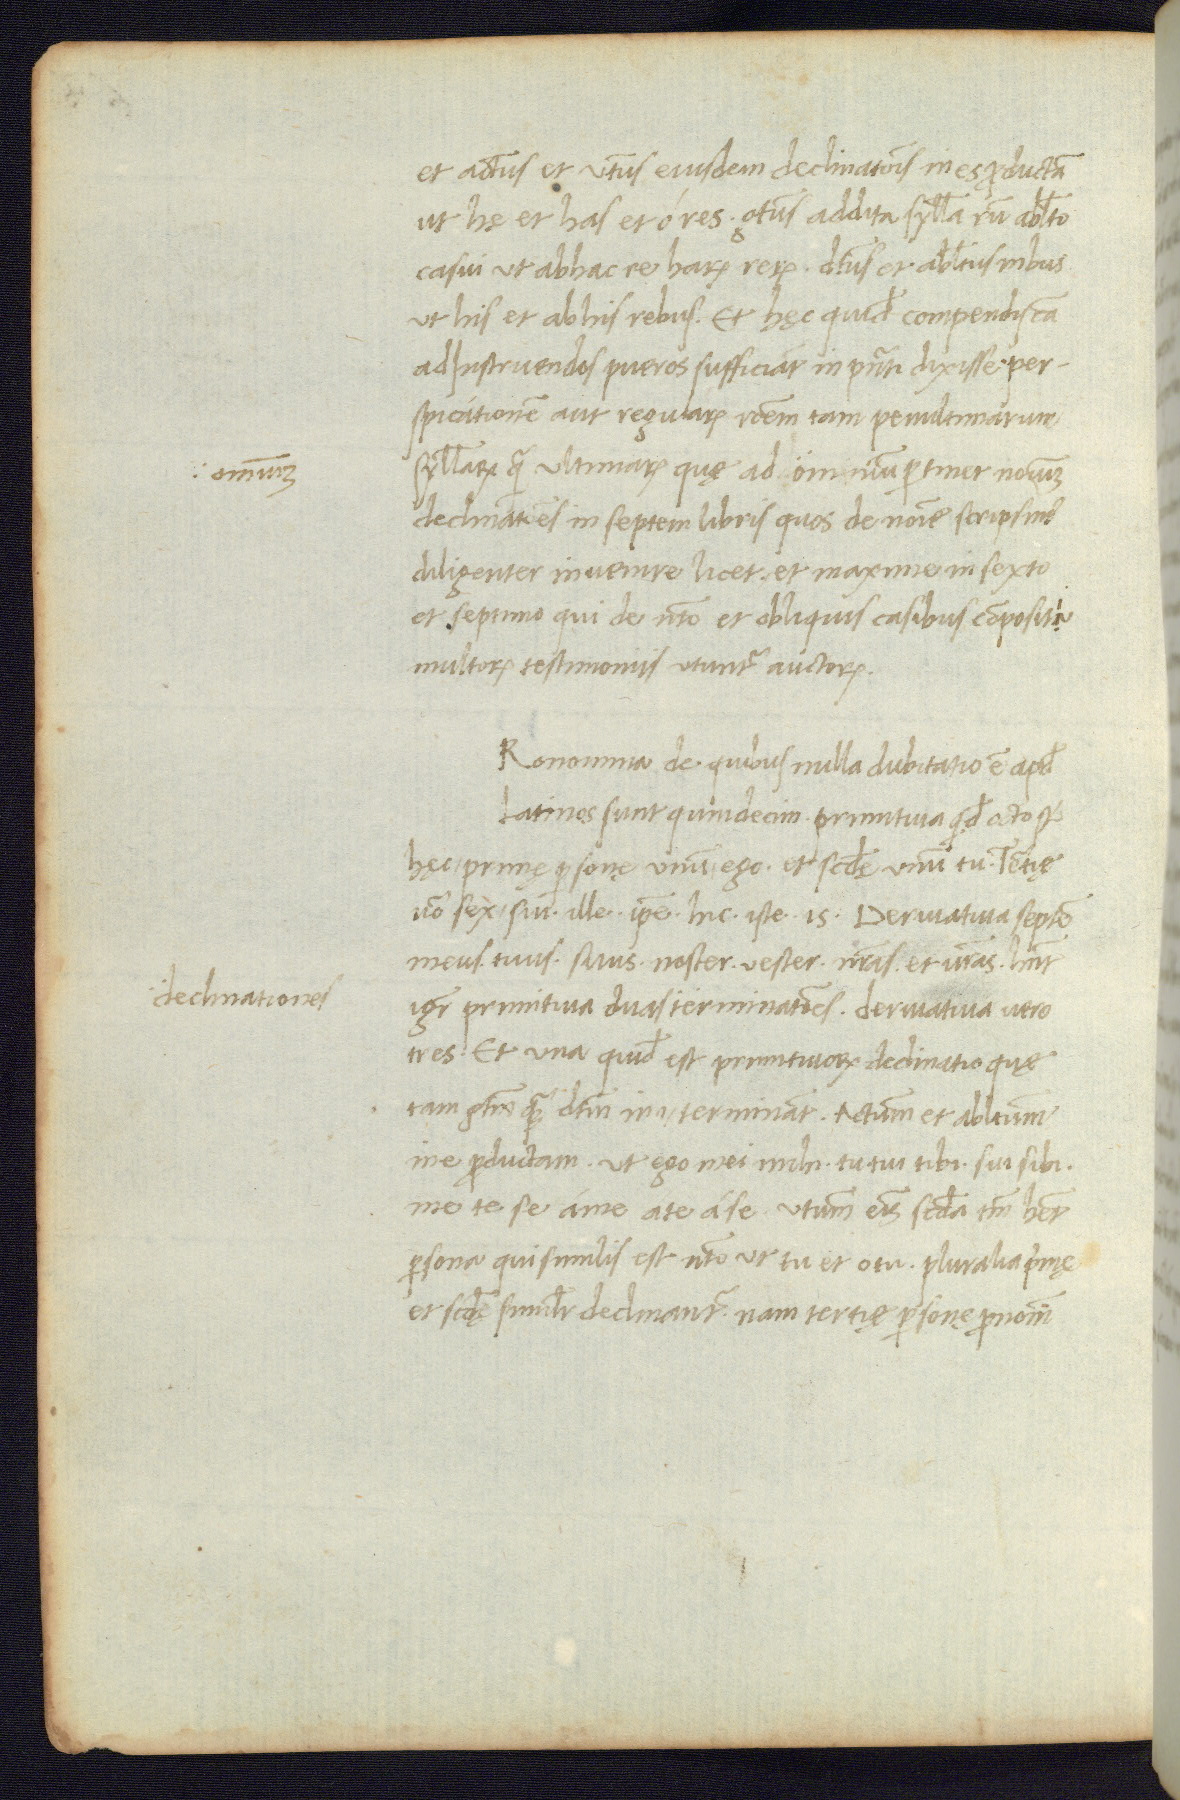 et actūs et vtūs eiusdem declinatōis in es ꝓductā
ut hę et has et ó res. gtūs addita syll̄a rū abl̄to
casui vt ab hac re harꝝ rerꝝ. dtūs et abl̄tius in bus
vt his et ab his rebus. Et hęc quid̄ compendii cā
ad Instruendos pueros sufficiāt in pn̄ti dixisse. per-
spicationē aut regularꝝ rōem tam penultimarum
:omniuꝫ
syll̄arꝝ q̄ ultimarꝝ quę ad omnium ꝑtinet noīuꝫ
declinatiōes in septem libris quos de noīe scripsimꝰ
diligenter inuenire licet. et maxime in sexto
et septimo qui de nt̄o et obliquis casibus cōpositi
multorꝝ testimoniis utunt̄ auctorꝝ.
Ronomina de quibus nulla dubitatio ē apd̄
Latinos sunt quindecim. primitiua qd̄ octo
hęc. primę ꝑsonę vnū ego. et scd̄ę vnū tu. Tertię
uō sex. sui. ille. ip̄e. hic. iste. is. Deriuatiua septē
meus. tuus. suus. noster. vester. nr̄as. et ur̄as. hn̄t
:declinationes
igr̄ primitiua duas terminatōes. deriuatiua uero
tres. Et una quid̄ est primitiuorꝝ declinatio quę
tam gtm̄ q̄ dtm̄ in i terminat. Actūm et abltiūm
in e ꝓductam. ut ego mei mihi. tu tui tibi. sui sibi.
me te se á me a te á se. Vtūm eīꝫ scd̄a tm̄ het̄
ꝑsona qui similis est nt̄o ut tu et o tu. pluralia primę
et scd̄ę simil̄r declinant̄. nam tertię ꝑsonę ꝓnoīn